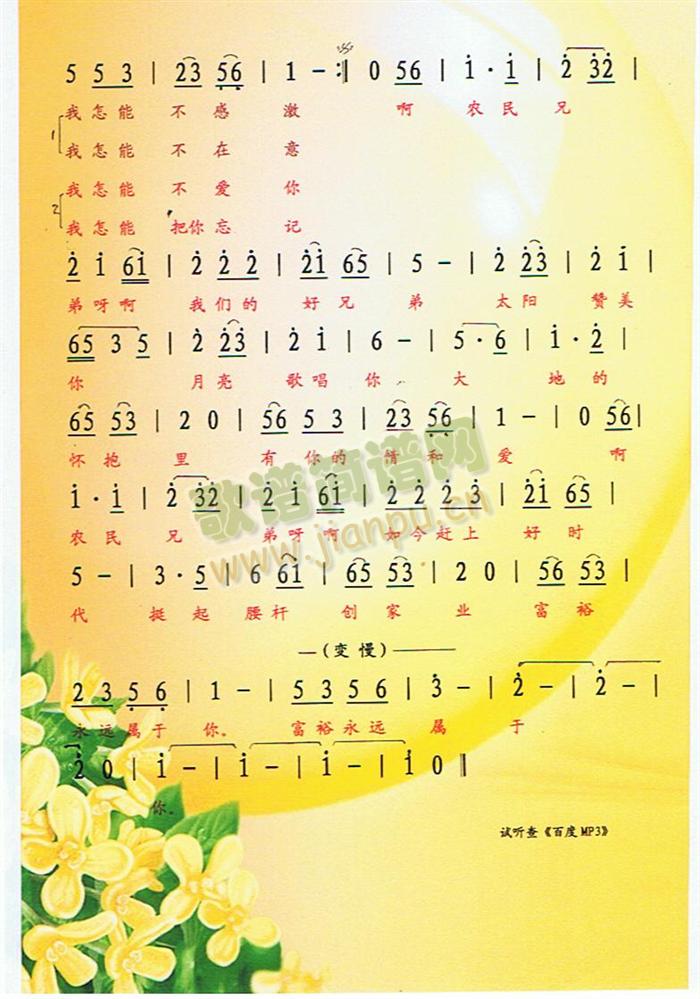 5 5 3 | 2 3 5 6 | 1 - :‖ 0 5 6 | i · i | 2 3 2 |
我怎能 不感激 啊 农民兄
1 我怎能 不在意
我怎能 不爱你
2 我怎能 把你忘记
2 i 6 i | 2 2 2 | 2 i 6 5 | 5 - | 2 2 3 | 2 i |
弟呀啊 我们的 好兄弟 太阳 赞美
6 5 3 5 | 2 2 3 | 2 i | 6 - | 5 · 6 | i · 2 |
你 月亮 歌唱 你 大 地的
6 5 5 3 | 2 0 | 5 6 5 3 | 2 3 5 6 | 1 - | 0 5 6 |
怀抱里 有你的情和爱 啊
i · i | 2 3 2 | 2 i 6 i | 2 2 2 3 | 2 i 6 5 |
农民兄 弟呀啊 如今赶上 好时
5 - | 3 · 5 | 6 6 i | 6 5 5 3 | 2 0 | 5 6 5 3 |
代 挺起 腰杆 创家业 富裕
—(变慢)———
2 3 5 6 | 1 - | 5 3 5 6 | 3 - | 2 - | 2 - |
永远属于 你。 富裕永远 属 于
2 0 | i - | i - | i - | i 0 ‖
你。
试听查《百度MP3》
歌谱简谱网
www.jianpu.cn